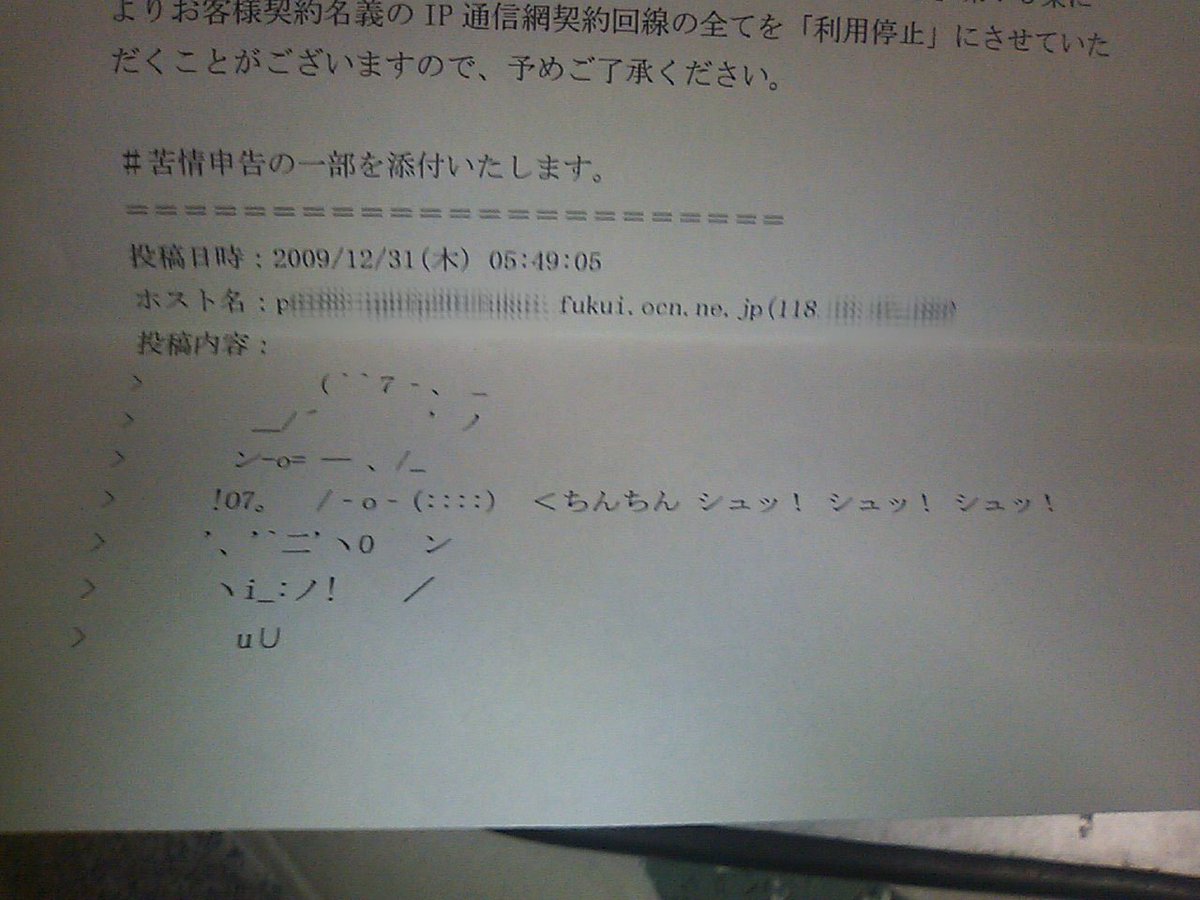 よりお客様契約名義の IP 通信網契約回線の全てを「利用停止」にさせていた
だくことがございますので、予めご了承ください。
＃苦情申告の一部を添付いたします。
=======================
投稿日時：2009/12/31(木) 05:49:05
ホスト名：p fukui.ocn.ne.jp(118
投稿内容：
> (｀｀7 -、 _
> __/´ ｀ ノ
> ン-o= ― 、/_
> !07。 / - o - (::::) ＜ちんちん シュッ! シュッ! シュッ!
> '、'｀二'ヽ0 ン
> ヽi_:ノ! ／
> u∪